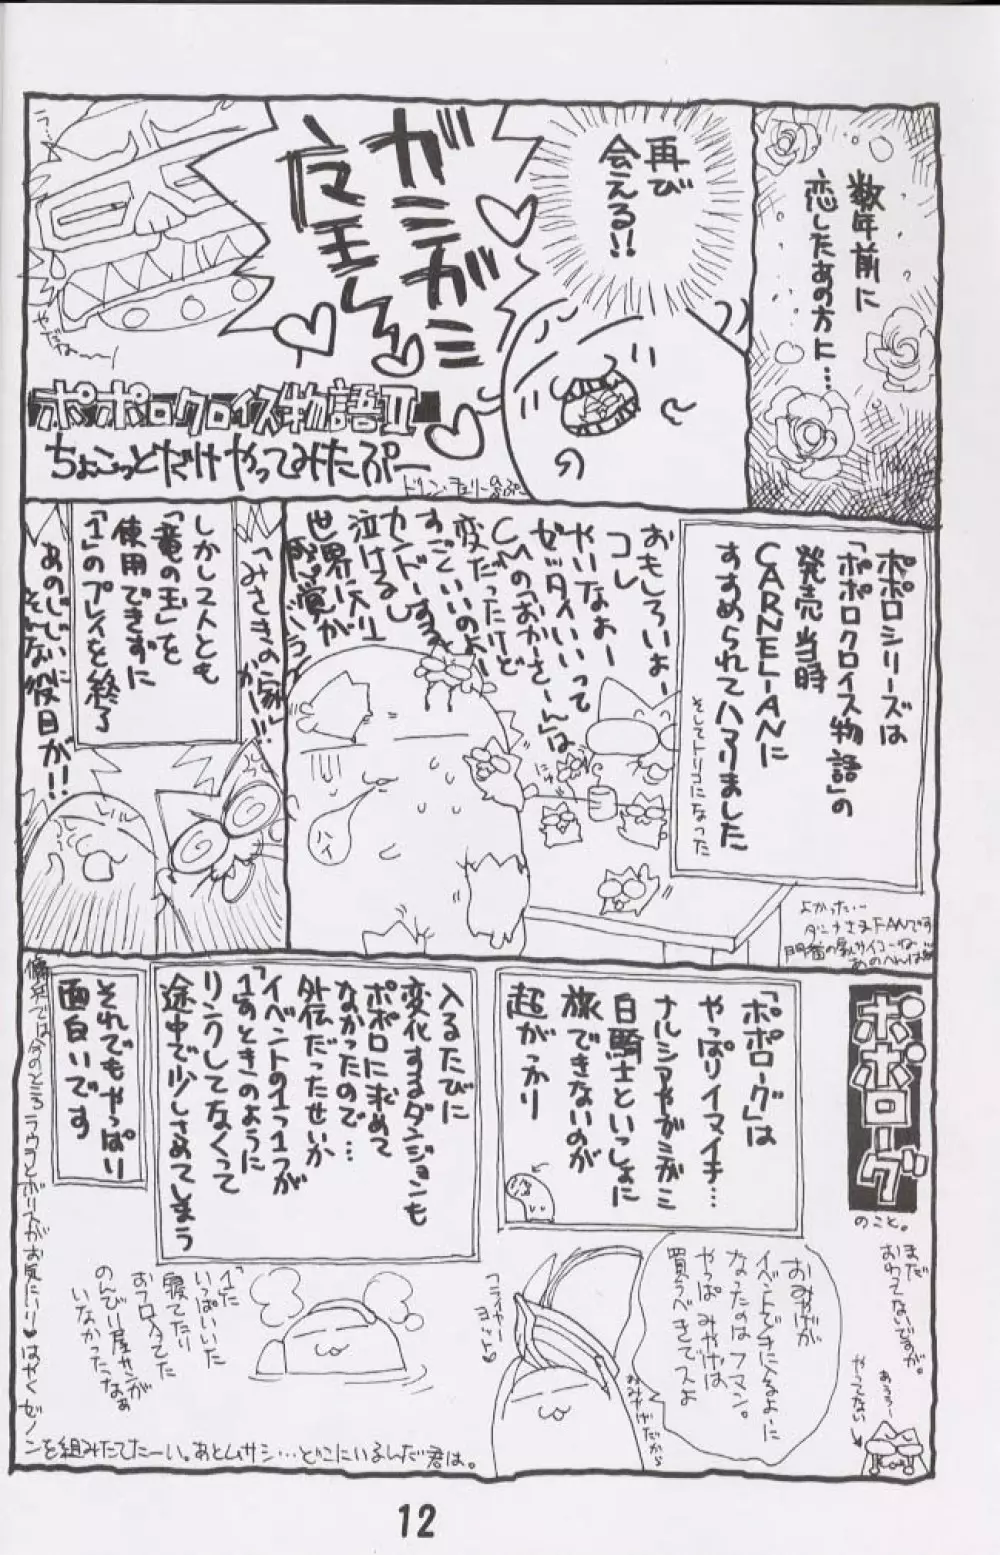 数年前に
恋したあの方に…
再び
会える!!
ガミガミ
魔王さん
ラ…
やだねーー
ポポロクロイス物語II
ちょこっとだけやってみたぷー
ポポロシリーズは
「ポポロクロイス物語」の
発売当時
CARNELIANに
すすめられてハマりました
そしてトリコになった
おもしろいよー
コレ
やいなよー
ゼッタイいいって
CMの「おかーさーん」は
変だったけど
すごくいいのよー
カンドーするし
泣けるし
世界に入り
ハイ
よかった…
「みさきの家」
がー!!!
しかし2人とも
「竜の玉」を
使用できずに
「1」のプレイを終了
あのじじいに
そんな役目が!!
ポポローグ
のこと。
まだ
おわってないですが。
あうぅー
やってない
「ポポローグ」は
やっぱりイマイチ…
ナルシアやガミガミ
白騎士といっしょに
旅できないのが
超がっかり
入るたびに
変化するダンジョンも
ポポロに求めて
なかったので…
外伝だったせいか
「イベントの1つ1つが
1」のときのように
リンクしてなくって
途中で少しさめてしまう
それでもやっぱり
面白いです
おみやげが
イベントで手に入るよーに
なったのはフマン。
やっぱ みやげは
買うべきでスよ
おみやげだから
「1」に
いっぱいいた
寝てたり
おフロ入ってた
のんびり屋サンが
いなかったなぁ
傭兵では今のところラウラとボリスがお気にいり♥はやくゼノ
ンを組みたてたーい。あとムサシ…どこにいるんだ君は。
12